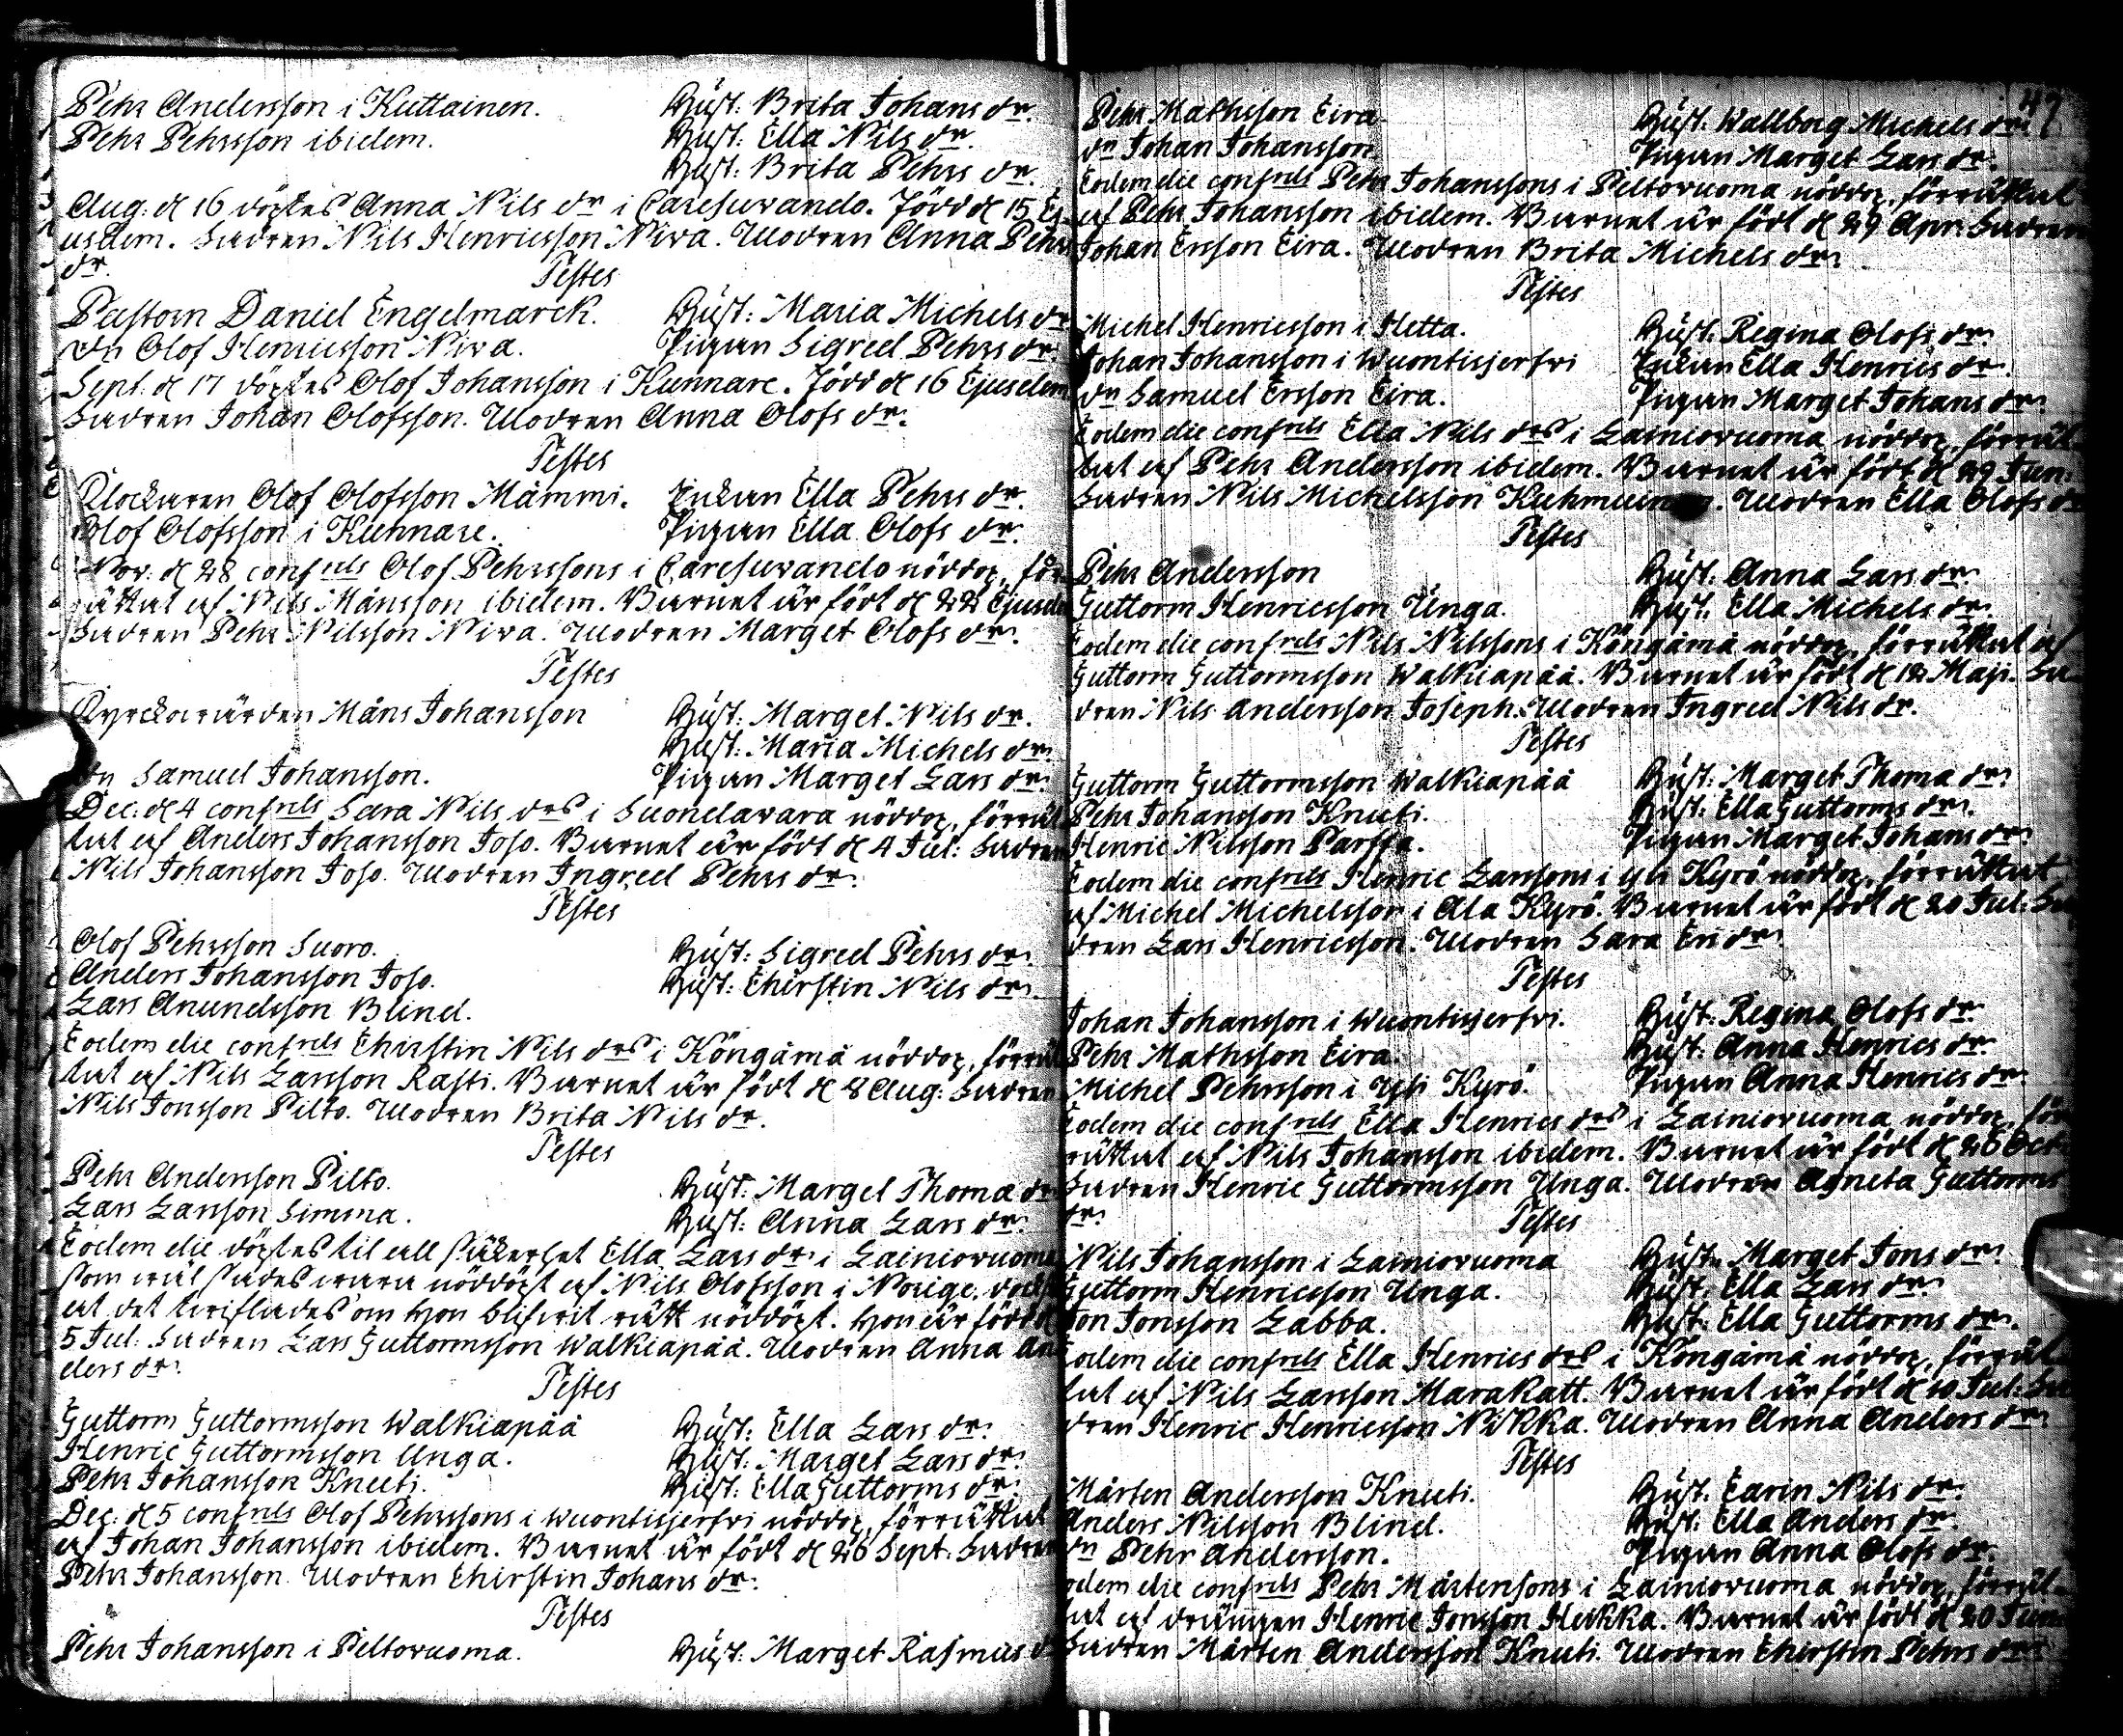 Pehr Andersson i Kuttainen. Hust: Brita Johans dr.
Pehr Pehrsson ibidem. Hust: Ella Nils dr.
Hust: Brita Pehrs dr.
Aug: d 16 döptes Anna Nils dr i Caresuvando. Född d 15 Ej-
usdem. Fadren Nils Henricsson Niva. Modren Anna Pehrs
dr.
Testes
Pastorn Daniel Engelmarck. Hust: Maria Michels dr
Dn Olof Henricsson Niva. Pigan Sigred Pehrs dr.
Sept: d 17 döptes Olof Johansson i Kunnare. Född d 16 Ejusdem
Fadren Johan Olofsson. Modren Anna Olofs dr.
Testes
Klockaren Olof Olofsson Mämmi. Enkan Ella Pehrs dr.
Olof Olofsson i Kuhnare. Pigan Ella Olofs dr.
Nov: d 28 confrels Olof Pehrssons i Caresuvando nöddop, för-
rättat af Nils Månsson ibidem. Barnet är födt d 22 Ejusdem
Fadren Pehr Nilsson Niva. Modren Marget Olofs dr.
Testes
Kyrckovärden Måns Johansson Hust: Marget Nils dr.
Hust: Maria Michels dr.
Dn Samuel Johansson. Pigan Marget Lars dr.
Dec: d 4 confrels Sara Nils drs i Suondavara nöddop, förrät
tat af Anders Johansson Joso. Barnet är födt d 4 Jul: Fadren
Nils Johansson Joso. Modren Ingred Pehrs dr.
Testes
Olof Pehrsson Suoro. Hust: Sigred Pehrs dr.
Anders Johansson Joso. Hust: Chirstin Nils dr.
Lars Anundsson Blind.
Eodem die confrels Chirstin Nils drs i Köngämä nöddop, förrät
tat af Nils Larsson Rasti. Barnet är födt d 8 Aug: Fadren
Nils Jonsson Pilto. Modren Brita Nils dr.
Testes
Pehr Andersson Pilto. Hust: Marget Thoma dr
Lars Larsson Simma. Hust: Anna Lars dr.
Eodem die döptes til all säkerhet Ella Lars dr i Lainiovuoma
som wäl sades wara nöddöpt af Nils Olofsson i Norige, dock
at det twiflades om hon blifwit rätt nöddöpt. Hon är född d
5 Jul: Fadren Lars Guttormsson Walkiapää. Modren Anna An
ders dr.
Testes
Guttorm Guttormsson Walkiapää Hust: Ella Lars dr.
Henric Guttormsson Unga. Hust: Marget Lars dr.
Pehr Johansson Knuti. Hust: Ella Guttorms dr.
Dec: d 5 confrels Olof Pehrssons i Wuontisjerfvi nöddop, förrättat
af Johan Johansson ibidem. Barnet är födt d 26 Sept: Fadren
Pehr Johansson. Modren Chirstin Johans dr.
Testes
Pehr Johansson i Peltovuoma. Hust: Marget Rasmus d
47
Pehr Mathsson Eira Hust: Wallborg Michels dr.
Dn Johan Johansson Pigan Marget Lars dr.
Eodem die confrels Pehr Johanssons i Peltovuoma nöddop, förrättat
af Pehr Johansson ibidem. Barnet är födt d 29 Apr: Fadren
Johan Ersson Eira. Modren Brita Michels dr.
Testes
Michel Henricsson i Hetta. Hust: Regina Olofs dr.
Johan Johansson i Wuontisjerfvi Enkan Ella Henrics dr.
Dn Samuel Ersson Eira. Pigan Marget Johans dr.
Eodem die confrels Ella Nils drs i Lainiovuoma nöddop, förrät
tat af Pehr Andersson ibidem. Barnet är födt d 29 Jun:
Fadren Nils Michelsson. Modren Ella Olofs dr
Testes
Pehr Andersson Hust: Anna Lars dr.
Guttorm Henricsson Unga. Hust: Ella Michels dr.
Eodem die confrels Nils Nilssons i Köngämä nöddop, förrättat af
Guttorm Guttormsson Walkiapää. Barnet är födt d 12 Maji. Fa-
dren Nils Andersson Joseph. Modren Ingred Nils dr.
Testes
Guttorm Guttormsson Walkiapää Hust: Marget Thoma dr.
Pehr Johansson Knuti. Hust: Ella Guttorms dr.
Henric Nilsson Parffa. Pigan Marget Johans dr.
Eodem die confrels Henric Larssons i Yli Kyrö nöddop, förrättat
af Michel Michelsson i Ala Kyrö. Barnet är födt d 20 Jul: Fa
dren Lars Henricsson. Modren Sara Eri dr.
Testes
Johan Johansson i Wuontisjerfvi. Hust: Regina Olofs dr.
Pehr Mathsson Eira. Hust: Anna Henrics dr.
Michel Pehrsson i Yli Kyrö. Pigan Anna Henrics dr.
Eodem die confrels Ella Henrics drs i Lainiovuoma nöddop, för
rättat af Nils Johansson ibidem. Barnet är födt d 26 Oct:
Fadren Henric Guttormsson Unga. Modren Agneta Guttorms
dr.
Testes
Nils Johansson i Lainiovuoma Hust: Marget Jons dr.
Guttorm Henricsson Unga. Hust: Ella Lars dr.
Jon Jonsson Labba. Hust: Ella Guttorms dr.
Eodem die confrels Ella Henrics drs i Köngämä nöddop, förrät-
tat af Nils Larsson Marakatt. Barnet är födt d 10 Jul: Fa
dren Henric Henricsson Nikka. Modren Anna Anders dr
Testes
Mårten Andersson Knuti. Hust: Carin Nils dr.
Anders Nilsson Blind. Hust: Ella Anders dr.
Dn Pehr Andersson. Pigan Anna Olofs dr.
odem die confrels Pehr Mårtenssons i Lainiovuoma nöddop, förrät-
tat af drängen Henric Jonsson Heikka. Barnet är födt d 20 Jun:
Fadren Mårten Andersson Knuti. Modren Chirstin Pehrs dr.